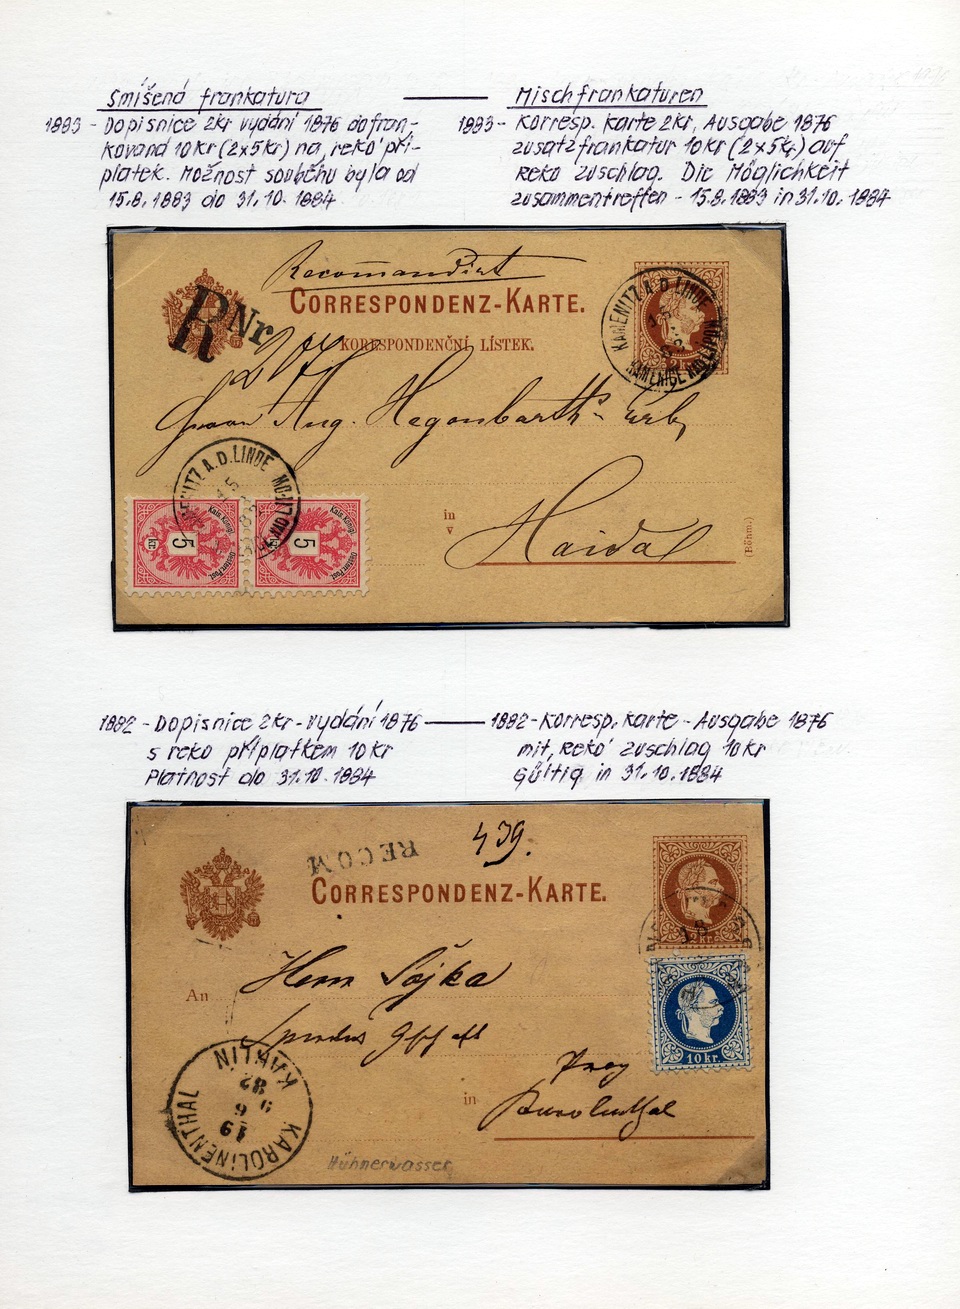 Smíšená frankatura — Mischfrankaturen
1883 - Dopisnice 2kr vydání 1876 dofran-
kovaná 10kr (2x5kr) na, reko pří-
platek. Možnost souběhu byla od
15.8.1883 do 31.10.1884
1883 - Korresp. Karte 2kr, Ausgabe 1876
zusatzfrankatur 10kr (2x5kr) auf
reko zuschlag. Die Möglichkeit
zusammentreffen - 15.8.1883 in 31.10.1884
Recommandirt
CORRESPONDENZ-KARTE.
R Nr
KORESPONDENČNÍ LÍSTEK.
KAMENITZ A.D. LINDE
KAMENICE NAD LIPOU
2 kr.
Aug. Hegenbarth's Erb.
in
v
Haida
(Böhm.)
KAMENITZ A.D. LINDE
Kais. Königl. Oesterr. Post
5
KR
Kais. Königl. Oesterr. Post
5
1882 - Dopisnice 2kr - vydání 1876 — 1882 - Korresp. karte - Ausgabe 1876
s reko příplatkem 10kr
Platnost do 31.10.1884
mit, reko' zuschlag 10kr
Gültig in 31.10.1884
439.
RECOM
CORRESPONDENZ-KARTE.
2 kr.
18
An
Herrn Sojka
10 kr.
Prag
in
Karolinenthal
KAROLINENTHAL
KARLIN
19
6
82
Hühnerwasser